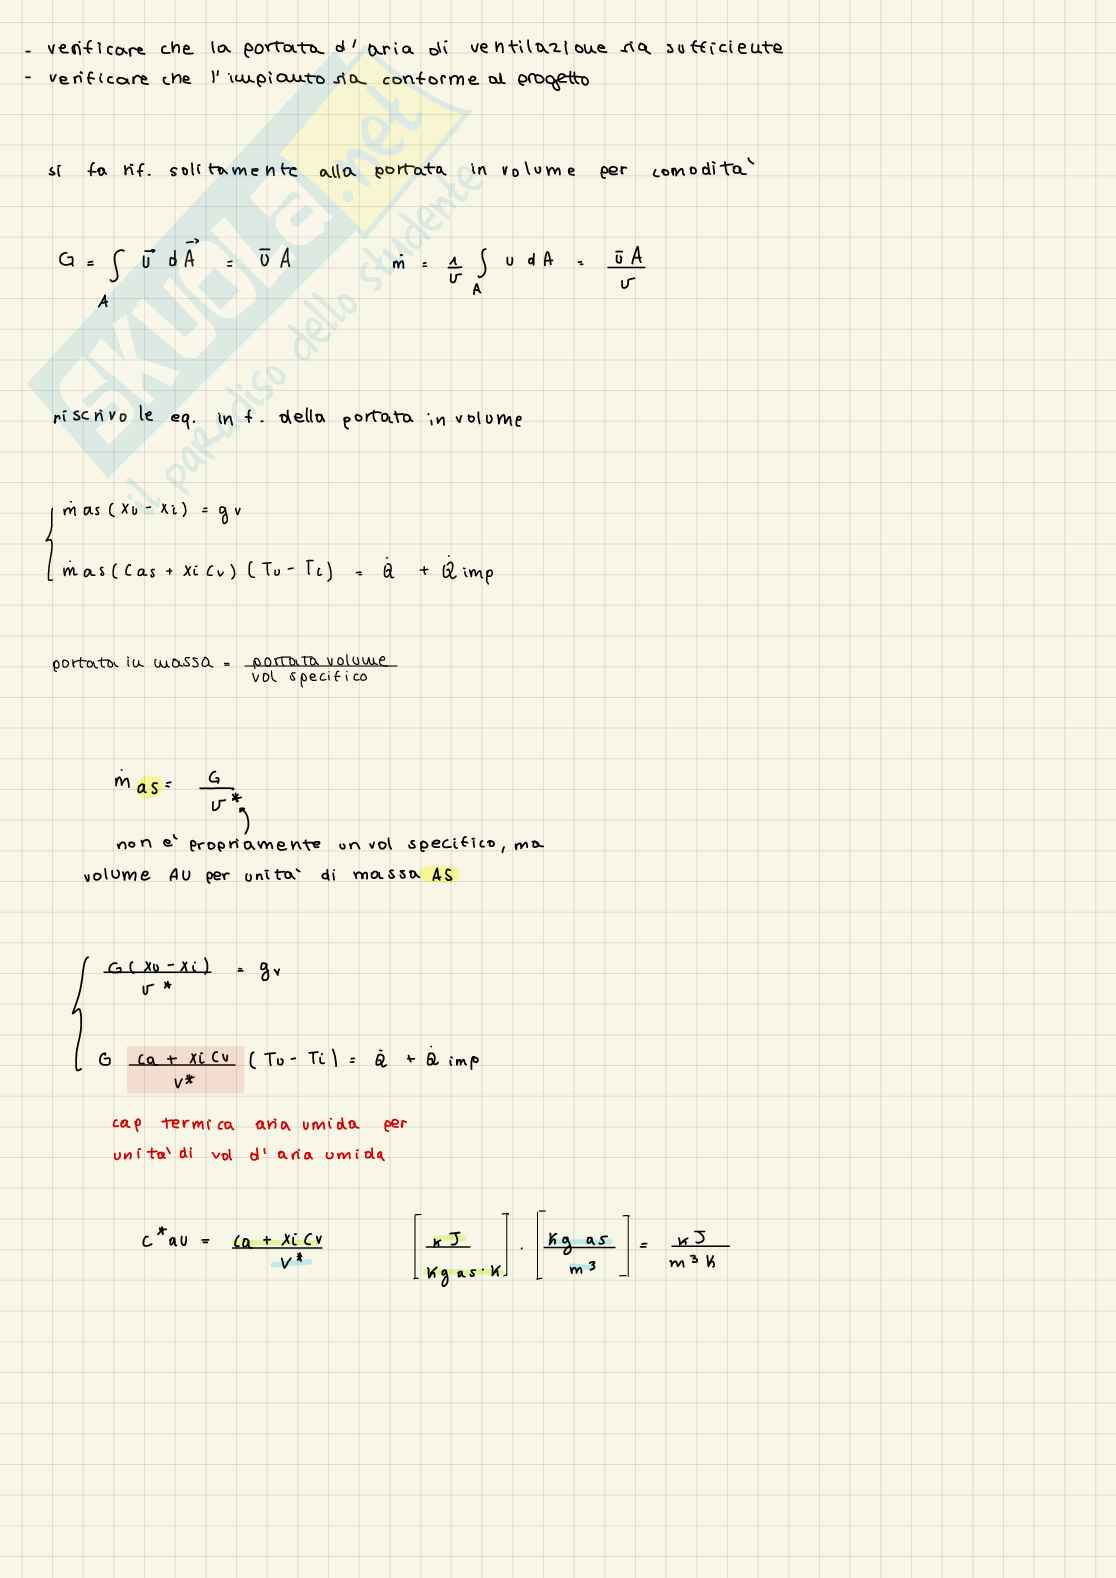 - verificare che la portata d'aria di ventilazione sia sufficiente
- verificare che l'impianto sia conforme al progetto
si fa rif. solitamente alla portata in volume per comodita'
G = ∫_A u⃗ dA⃗ = ū A    ṁ = 1/v ∫_A u dA = ū A / v
riscrivo le eq. in f. della portata in volume
ṁas (xu - xi) = gv
ṁas (Cas + xi Cv) (Tu - Ti) = Q̇ + Q̇ imp
portata in massa = portata volume / vol specifico
ṁ as = G / v*
non e' propriamente un vol specifico, ma
volume AU per unita' di massa AS
G (xu - xi) / v* = gv
G (ca + xi Cv) / v* (Tu - Ti) = Q̇ + Q̇ imp
cap termica aria umida per
unita' di vol d'aria umida
c*au = (ca + xi Cv) / v*    [kJ / Kg as · K] · [Kg as / m³] = kJ / m³ K
SKUOLA.net
il paradiso dello studente